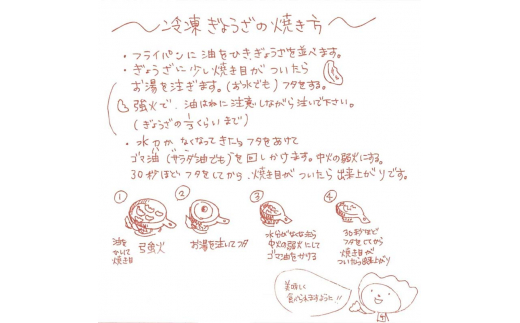 〜冷凍ぎょうざの焼き方〜
・フライパンに油をひき、ぎょうざを並べます。
・ぎょうざに少し焼き目がついたら
お湯を注ぎます。(お水でも)フタをする。
強火で、油はねに注意しながら注いで下さい。
(ぎょうざの1/3くらいまで)
・水分がなくなってきたらフタをあけて
ゴマ油(サラダ油でも)を回しかけます。中火の弱火にする。
30秒ほどフタをしてから、焼き目がついたら出来上がりです。
①
油を
かいて
焼き目
強火
②
お湯を注いでフタ
③
水分がなくなったら
中火の弱火にして
ゴマ油をかける
④
30秒ほど
フタをしてから
焼き目が
ついたら出来上がり
美味しく
食べられますように!!